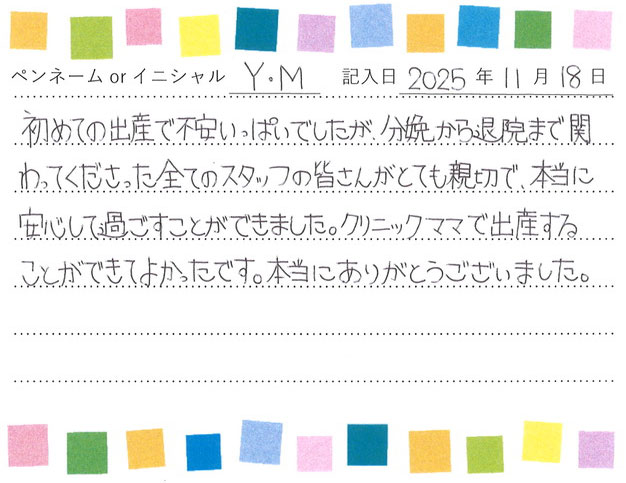 ペンネーム or イニシャル Y・M 記入日 2025 年 11 月 18 日
初めての出産で不安いっぱいでしたが、分娩から退院まで関
わってくださった全てのスタッフの皆さんがとても親切で、本当に
安心して過ごすことができました。クリニックママで出産する
ことができてよかったです。本当にありがとうございました。